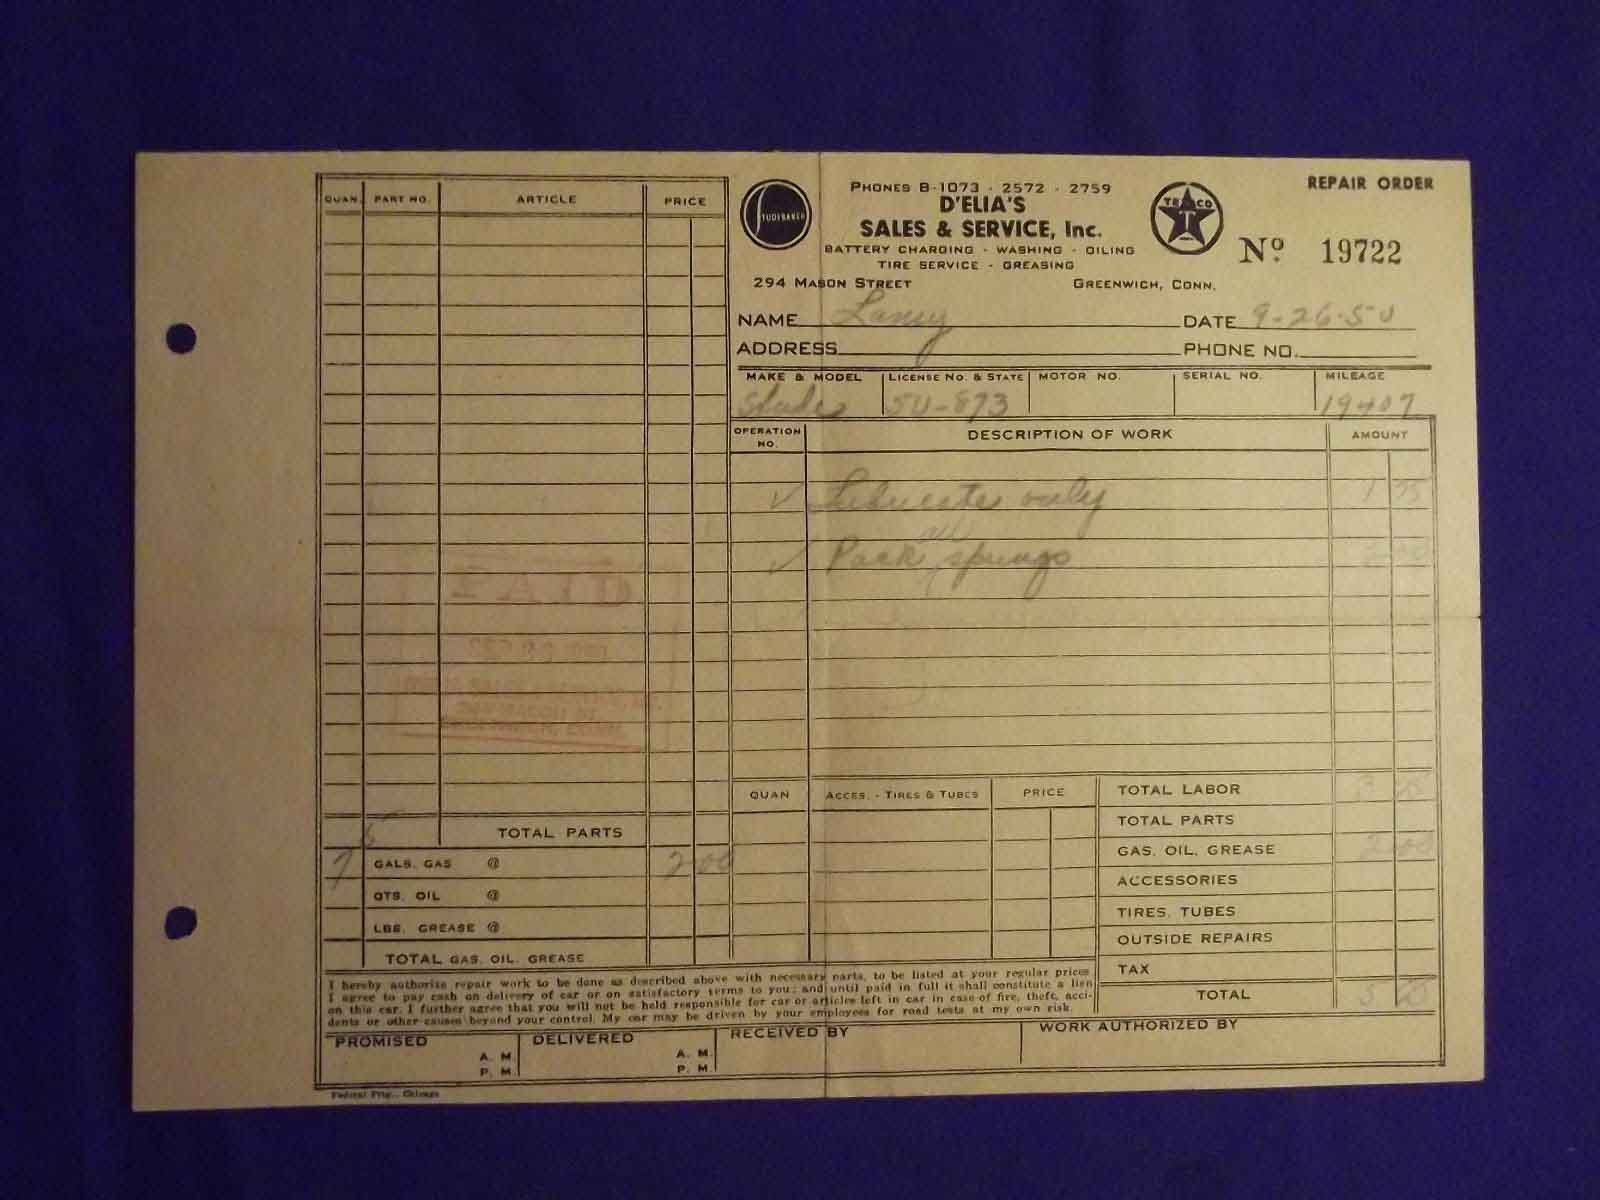 QUAN. PART NO. ARTICLE PRICE
STUDEBAKER
PHONES B-1073 - 2572 - 2759
D'ELIA'S
SALES & SERVICE, Inc.
BATTERY CHARGING - WASHING - OILING
TIRE SERVICE - GREASING
294 MASON STREET GREENWICH, CONN.
TEXACO
T
REPAIR ORDER
Nº. 19722
NAME DATE 9-26-50
ADDRESS PHONE NO.
MAKE & MODEL LICENSE NO. & STATE MOTOR NO. SERIAL NO. MILEAGE
SU-873 19407
OPERATION NO. DESCRIPTION OF WORK AMOUNT
✓ Lubricate only 1 75
✓ Pack all springs 2 00
PAID
TOTAL PARTS
7 GALS. GAS @ 2 00
QTS. OIL @
LBS. GREASE @
TOTAL GAS, OIL, GREASE
QUAN ACCES. - TIRES & TUBES PRICE
TOTAL LABOR 3 75
TOTAL PARTS
GAS, OIL, GREASE 2 00
ACCESSORIES
TIRES, TUBES
OUTSIDE REPAIRS
TAX
TOTAL 5 75
I hereby authorize repair work to be done as described above with necessary parts, to be listed at your regular prices.
I agree to pay cash on delivery of car or on satisfactory terms to you; and until paid in full it shall constitute a lien
on this car. I further agree that you will not be held responsible for car or articles left in car in case of fire, theft, acci-
dents or other causes beyond your control. My car may be driven by your employees for road tests at my own risk.
PROMISED A. M. P. M. DELIVERED A. M. P. M. RECEIVED BY WORK AUTHORIZED BY
Federal Prtg., Chicago